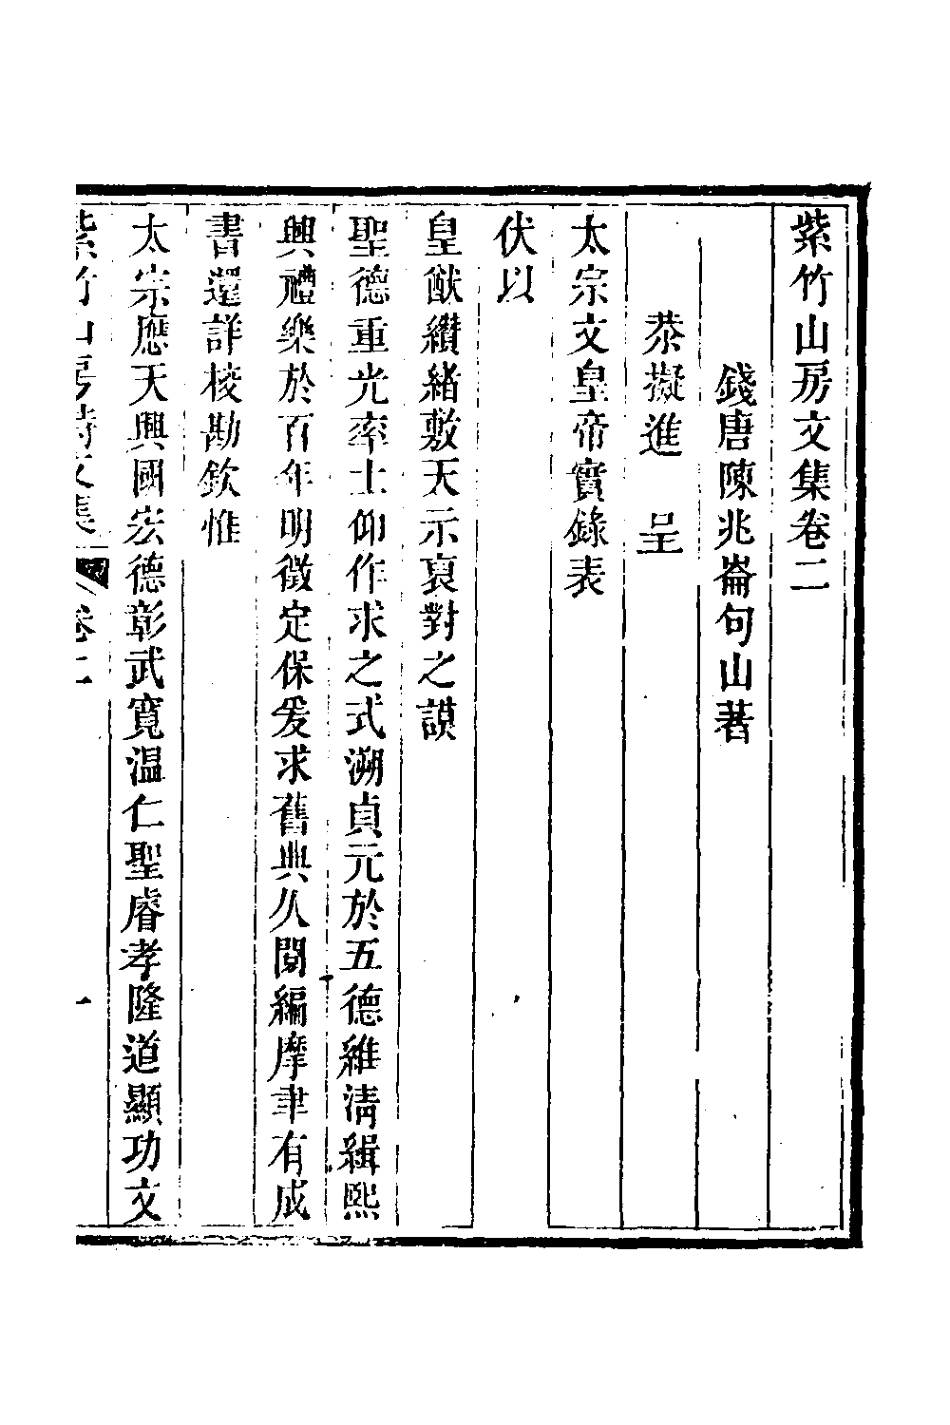 紫竹山房文集卷二
錢唐陳兆崙句山著
恭擬進　呈
太宗文皇帝實錄表
伏以
皇猷纘緒敷天示裒對之謨
聖德重光率土仰作求之式溯貞元於五德維清緝熙
興禮樂於百年明徵定保爰求舊典久閱編摩聿有成
書還詳校勘欽惟
太宗應天興國宏德彰武寬温仁聖睿孝隆道顯功文
紫竹山房詩文集　卷二　一